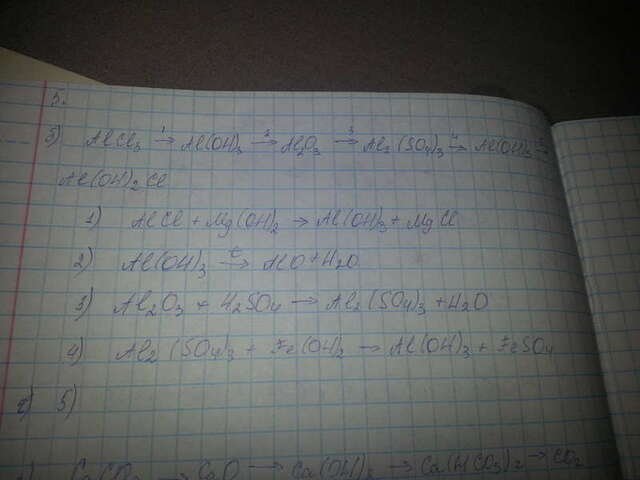 5.
б) AlCl₃ →¹ Al(OH)₃ →² Al₂O₃ →³ Al₂(SO₄)₃ →⁴ Al(OH)₃ →
Al(OH)₂Cl
1) AlCl + Mg(OH)₂ → Al(OH)₃ + MgCl
2) Al(OH)₃ →ᵗ AlO + H₂O
3) Al₂O₃ + H₂SO₄ → Al₂(SO₄)₃ + H₂O
4) Al₂(SO₄)₃ + Fe(OH)₂ → Al(OH)₃ + FeSO₄
5)
CaCO₃ → CaO → Ca(OH)₂ → Ca(HCO₃)₂ → CO₂